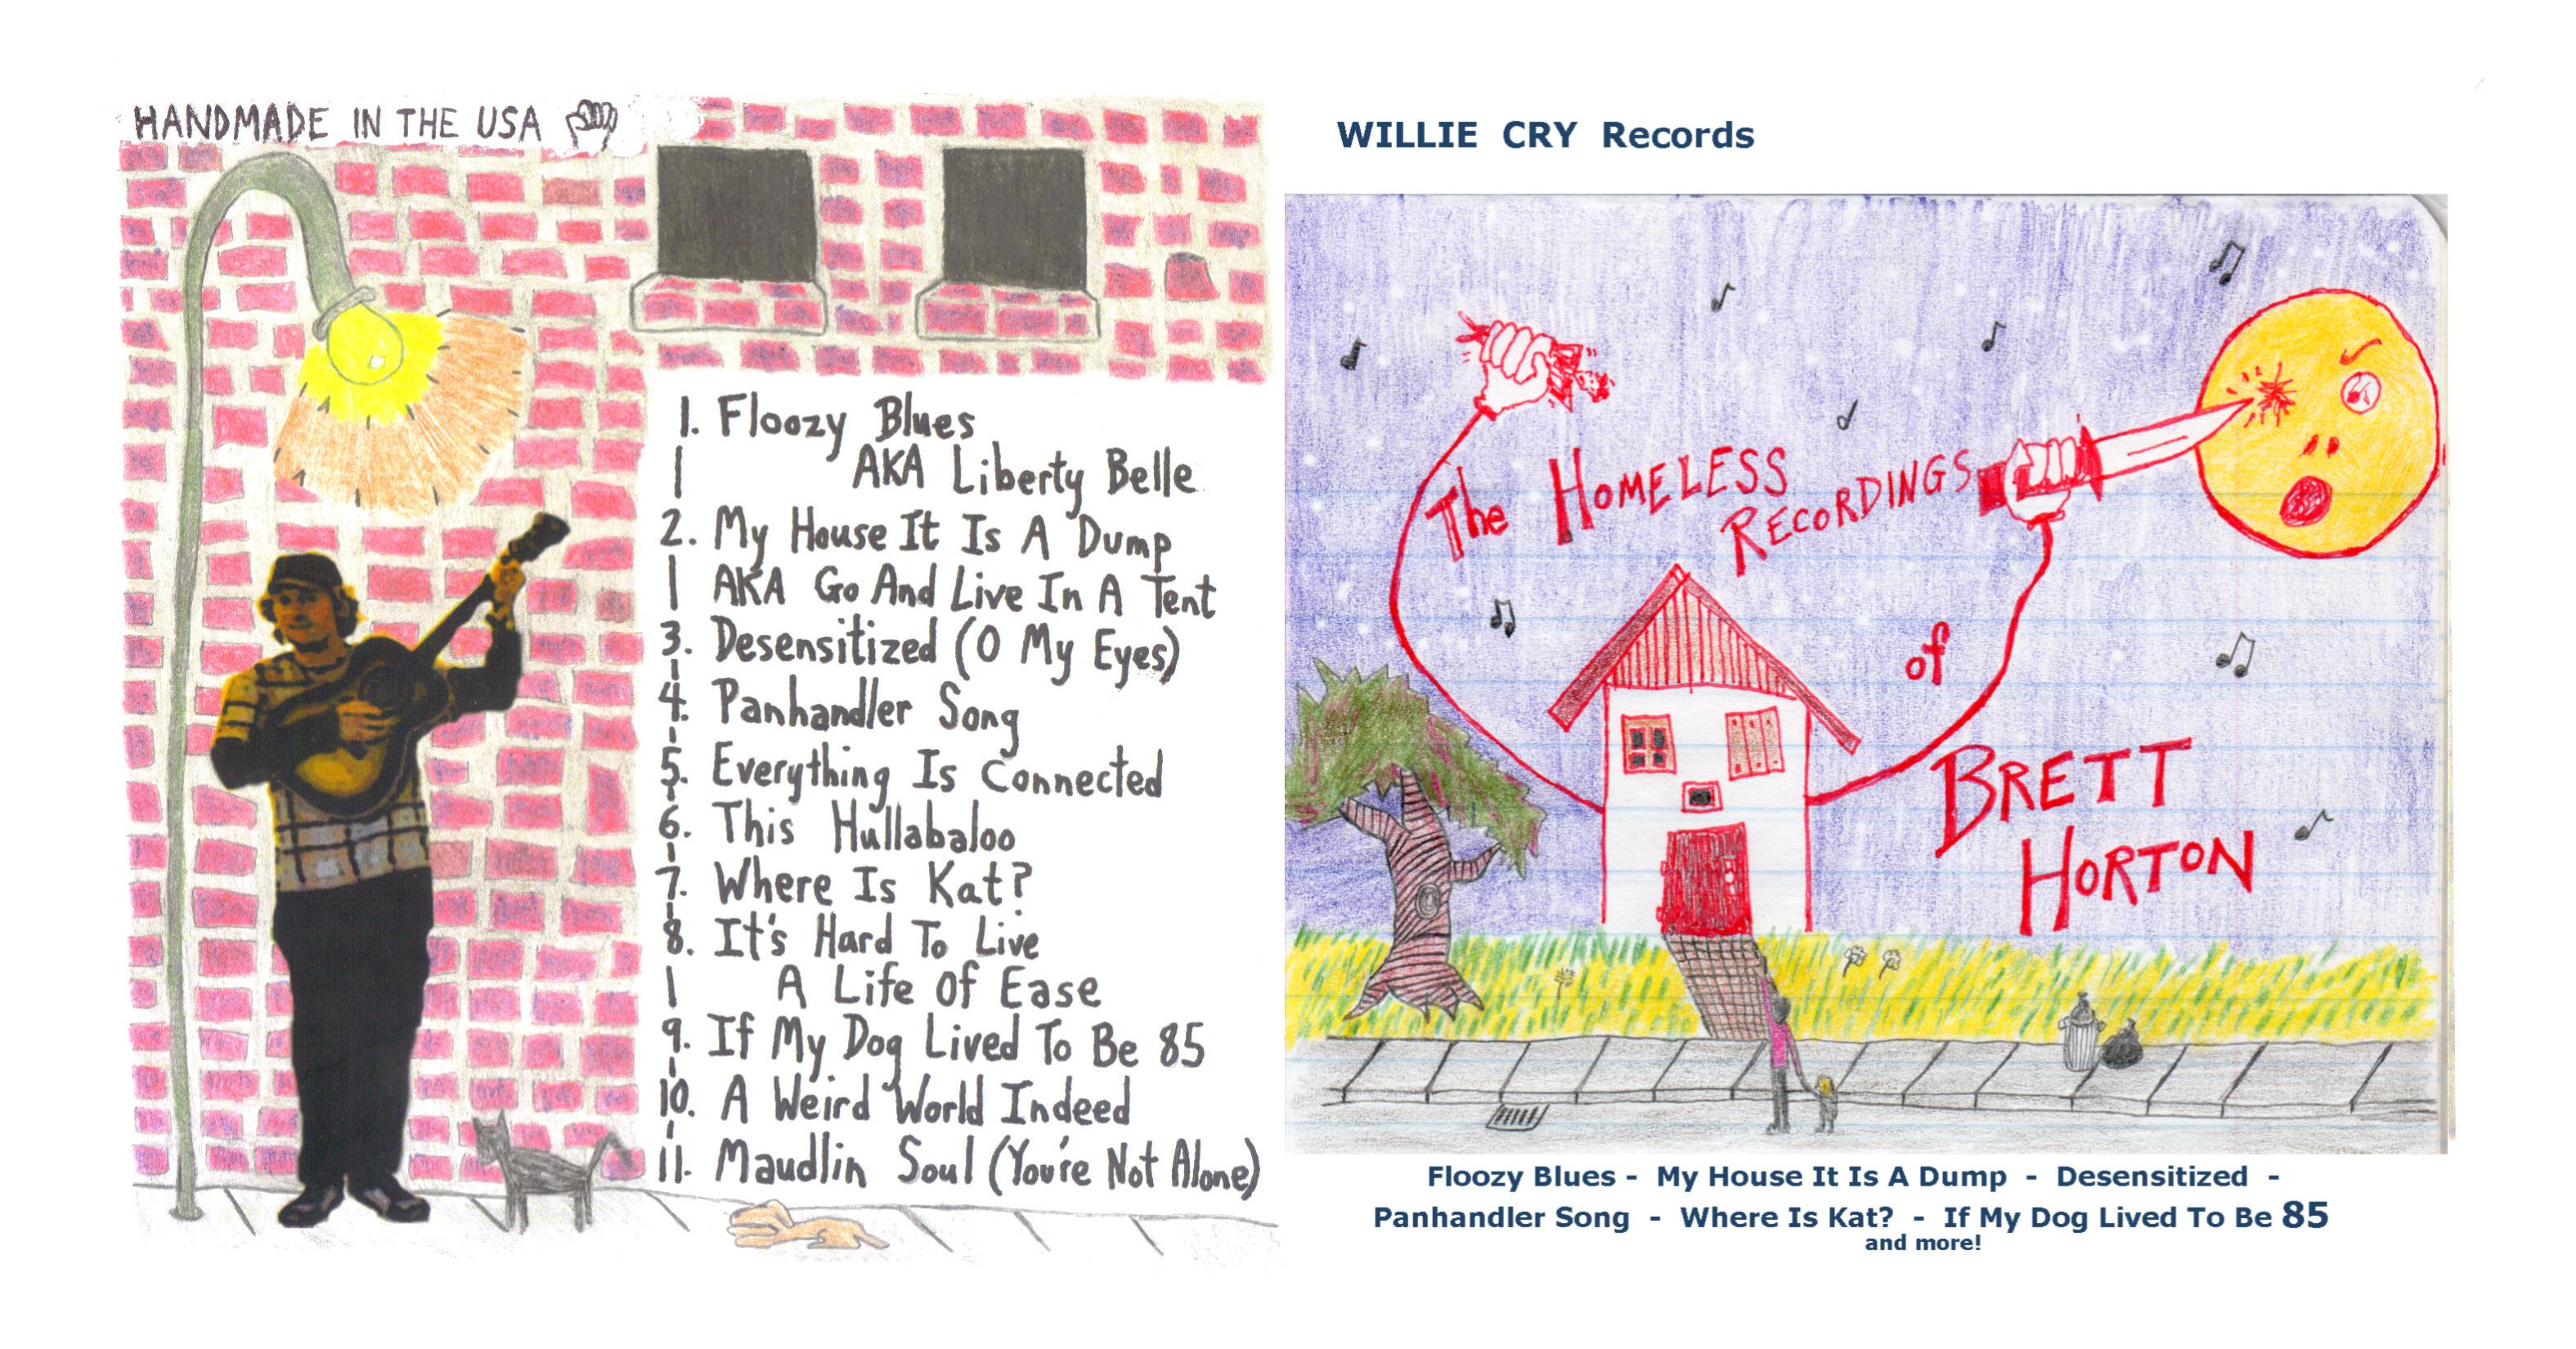 HANDMADE IN THE USA
1. Floozy Blues
AKA Liberty Belle
2. My House It Is A Dump
AKA Go And Live In A Tent
3. Desensitized (O My Eyes)
4. Panhandler Song
5. Everything Is Connected
6. This Hullabaloo
7. Where Is Kat?
8. It's Hard To Live
A Life Of Ease
9. If My Dog Lived To Be 85
10. A Weird World Indeed
11. Maudlin Soul (You're Not Alone)
WILLIE CRY Records
The HOMELESS
RECORDINGS
of
BRETT
HORTON
Floozy Blues - My House It Is A Dump - Desensitized -
Panhandler Song - Where Is Kat? - If My Dog Lived To Be 85
and more!